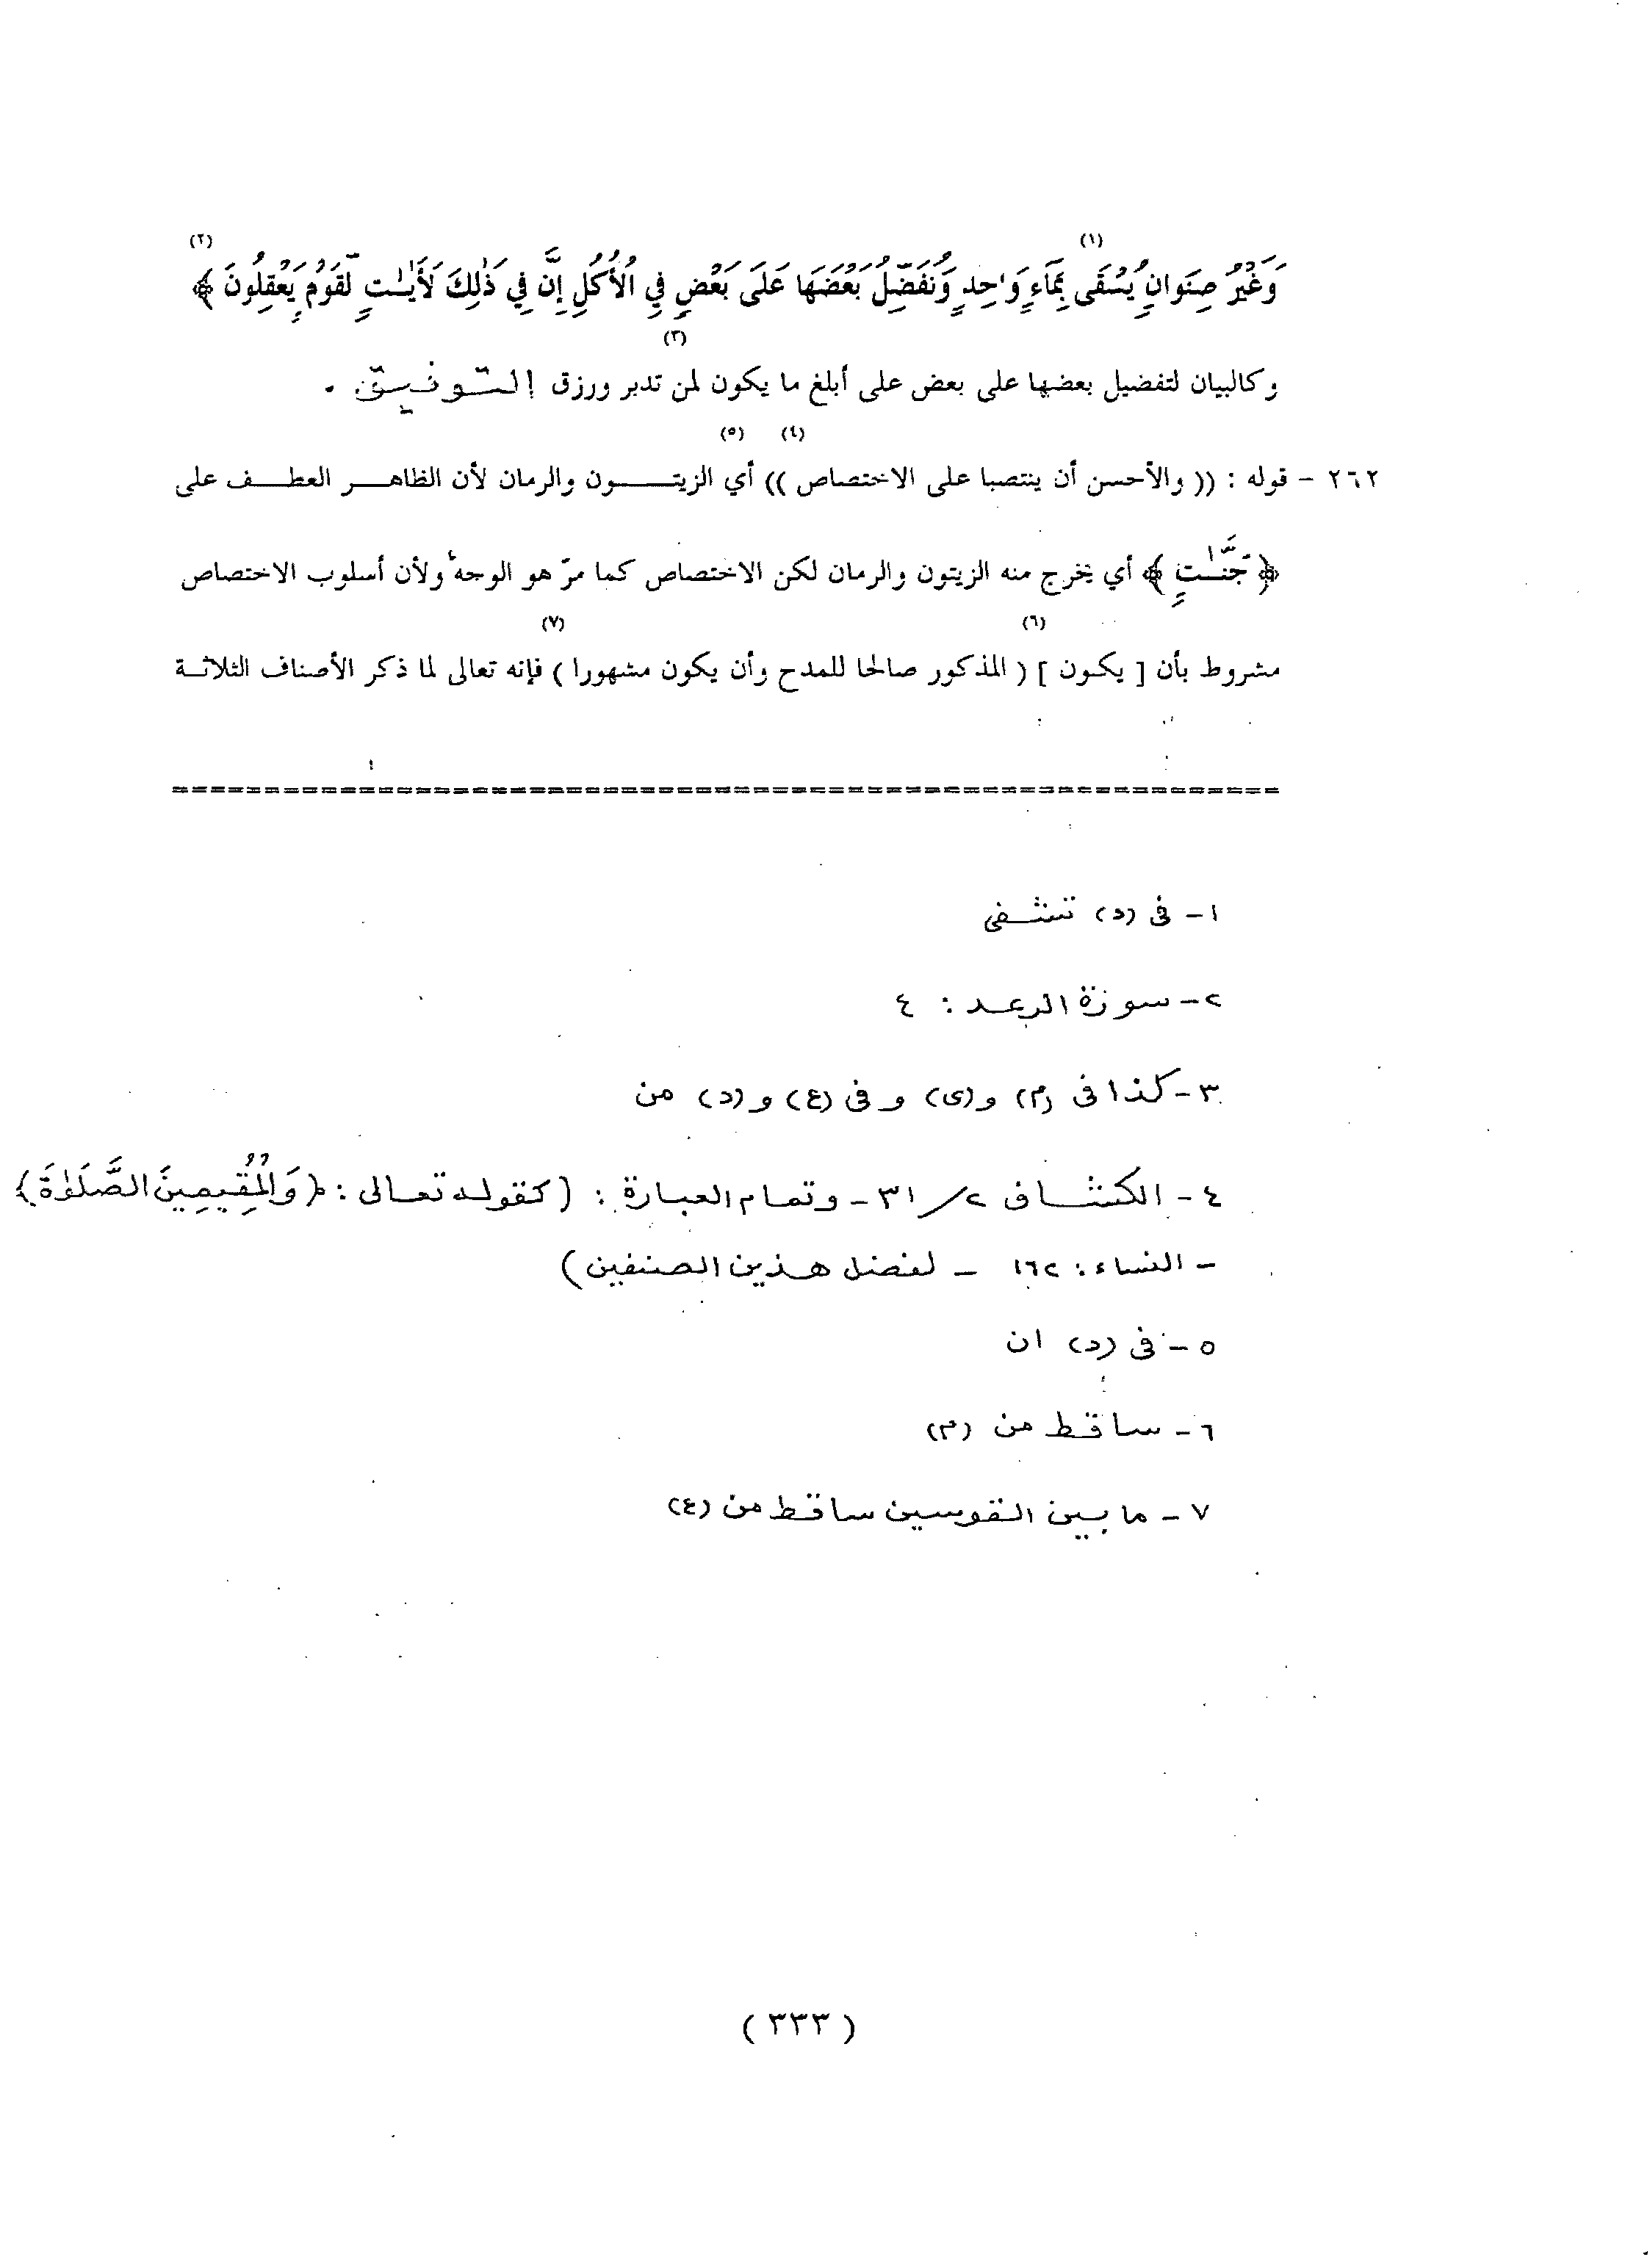 (١) (٢)
وَغَيْرُ صِنْوَانٍ يُسْقَى بِمَاءٍ وَاحِدٍ وَنُفَضِّلُ بَعْضَهَا عَلَى بَعْضٍ فِي الْأُكُلِ إِنَّ فِي ذَٰلِكَ لَأَيَـٰتٍ لِّقَوْمٍ يَعْقِلُونَ ﴾
(٣)
وكالبيان لتفضيل بعضها على بعض على أبلغ ما يكون لمن تدبر ورزق التوفيق .
(٤) (٥)
٢٦٢ - قوله : (( والأحسن أن ينتصبا على الاختصاص )) أي الزيتـــون والرمان لأن الظاهـر العطـف على
﴿ جَنَّـٰتٍ ﴾ أي يخرج منه الزيتون والرمان لكن الاختصاص كما مرّ هو الوجه ولأن أسلوب الاختصاص
(٦) (٧)
مشروط بأن [ يكون ] ( المذكور صالحا للمدح وأن يكون مشهورا ) فإنه تعالى لما ذكر الأصناف الثلاثة
١- فى (د) تسقى
٢- سورة الرعد : ٤
٣- كذا فى (م) و(ى) وفى (ع) و(د) من
٤- الكشاف ٢/٣١ - وتمام العبارة : (كقوله تعالى : ﴿وَالْمُقِيمِينَ الصَّلَوٰةَ﴾
- النساء : ١٦٢ - لفضل هذين الصنفين)
٥- فى (د) ان
٦- ساقط من (م)
٧- ما بين القوسين ساقط من (ع)
( ٣٣٣ )